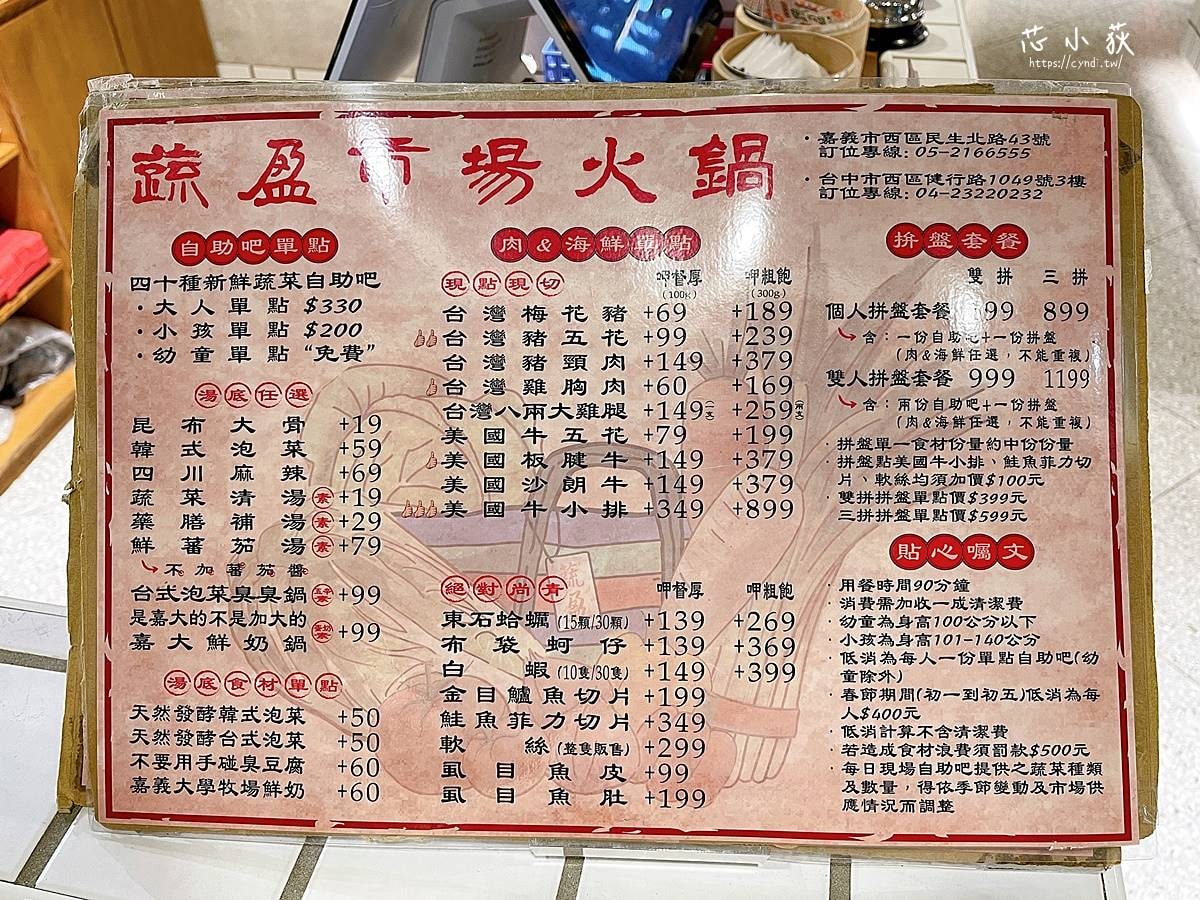 芯小荻
https://cyndi.tw/
蔬盈市場火鍋
·嘉義市西區民生北路43號
訂位專線: 05-2166555
·台中市西區健行路1049號3樓
訂位專線: 04-23220232
自助吧單點
四十種新鮮蔬菜自助吧
·大人單點 $330
·小孩單點 $200
·幼童單點 “免費”
湯底任選
昆布大骨 +19
韓式泡菜 +59
四川麻辣 +69
蔬菜清湯 素 +19
藥膳補湯 素 +29
鮮蕃茄湯 素 +79
不加蕃茄醬
台式泡菜臭臭鍋 五辛素 +99
是嘉大的不是加大的
嘉大鮮奶鍋 蛋奶素 +99
湯底食材單點
天然發酵韓式泡菜 +50
天然發酵台式泡菜 +50
不要用手碰臭豆腐 +60
嘉義大學牧場鮮奶 +60
肉&海鮮單點
現點現切 呷督厚 (100g) 呷粗飽 (300g)
台灣梅花豬 +69 +189
台灣豬五花 +99 +239
台灣豬頸肉 +149 +379
台灣雞胸肉 +60 +169
台灣八兩大雞腿 +149 (一支) +259 (兩支)
美國牛五花 +79 +199
美國板腱牛 +149 +379
美國沙朗牛 +149 +379
美國牛小排 +349 +899
絕對尚青 呷督厚 呷粗飽
東石蛤蠣 (15顆/30顆) +139 +269
布袋蚵仔 +139 +369
白蝦 (10隻/30隻) +149 +399
金目鱸魚切片 +199
鮭魚菲力切片 +349
軟絲 (整隻販售) +299
虱目魚皮 +99
虱目魚肚 +199
拚盤套餐
雙拼 三拼
個人拼盤套餐 99 899
含：一份自助吧+一份拼盤
(肉&海鮮任選，不能重複)
雙人拼盤套餐 999 1199
含：兩份自助吧+一份拼盤
(肉&海鮮任選，不能重複)
·拼盤單一食材份量約中份份量
·拼盤點美國牛小排、鮭魚菲力切
片、軟絲均須加價$100元
·雙拼拼盤單點價$399元
三拼拼盤單點價$599元
貼心囑文
·用餐時間90分鐘
·消費需加收一成清潔費
·幼童為身高100公分以下
·小孩為身高101-140公分
·低消為每人一份單點自助吧(幼
童除外)
·春節期間(初一到初五)低消為每
人$400元
·低消計算不含清潔費
·若造成食材浪費須罰款$500元
·每日現場自助吧提供之蔬菜種類
及數量，得依季節變動及市場供
應情況而調整